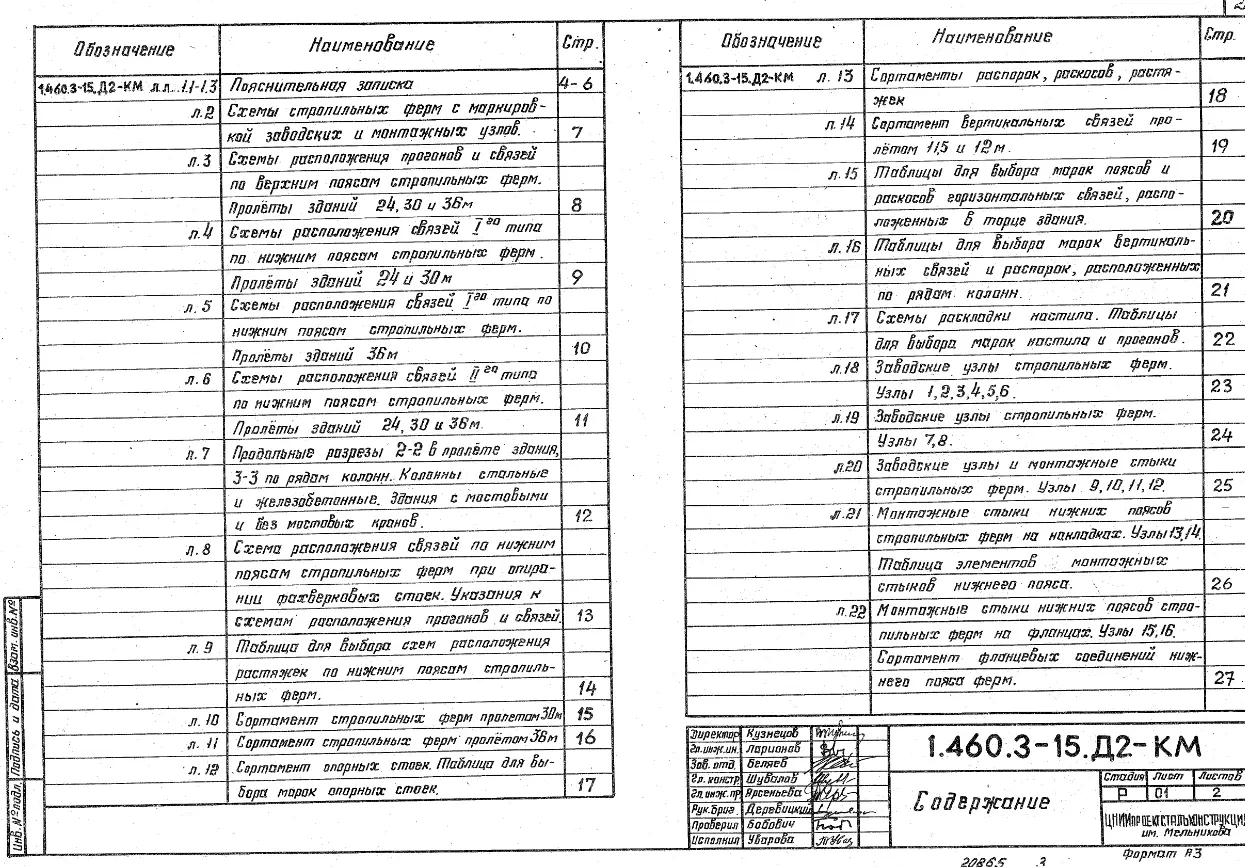 2
Обозначение Наименование Стр.
1.460.3-15.Д2-КМ л.л. 1.1-1.3 Пояснительная записка 4-6
л.2 Схемы стропильных ферм с маркиров-
кой заводских и монтажных узлов. 7
л.3 Схемы расположения прогонов и связей
по верхним поясам стропильных ферм.
Пролёты зданий 24, 30 и 36м 8
л.4 Схемы расположения связей I го типа
по нижним поясам стропильных ферм.
Пролёты зданий 24 и 30м 9
л.5 Схемы расположения связей I го типа по
нижним поясам стропильных ферм.
Пролёты зданий 36м 10
л.6 Схемы расположения связей II го типа
по нижним поясам стропильных ферм.
Пролёты зданий 24, 30 и 36м. 11
л.7 Продольные разрезы 2-2 в пролёте здания,
3-3 по рядам колонн. Колонны стальные
и железобетонные. Здания с мостовыми
и без мостовых кранов. 12
л.8 Схема расположения связей по нижним
поясам стропильных ферм при опира-
нии фахверковых стоек. Указания к
схемам расположения прогонов и связей. 13
л.9 Таблица для выбора схем расположения
растяжек по нижним поясам стропиль-
ных ферм. 14
л.10 Сортамент стропильных ферм пролетом 30м 15
л.11 Сортамент стропильных ферм пролётом 36м 16
л.12 Сортамент опорных стоек. Таблица для вы-
бора марок опорных стоек. 17
Обозначение Наименование Стр.
1.460.3-15.Д2-КМ л.13 Сортаменты распорок, раскосов, растя-
жек 18
л.14 Сортамент вертикальных связей про-
лётом 11,5 и 12м. 19
л.15 Таблицы для выбора марок поясов и
раскосов горизонтальных связей, распо-
ложенных в торце здания. 20
л.16 Таблицы для выбора марок вертикаль-
ных связей и распорок, расположенных
по рядам колонн. 21
л.17 Схемы раскладки настила. Таблицы
для выбора марок настила и прогонов. 22
л.18 Заводские узлы стропильных ферм.
Узлы 1,2,3,4,5,6. 23
л.19 Заводские узлы стропильных ферм.
Узлы 7,8. 24
л.20 Заводские узлы и монтажные стыки
стропильных ферм. Узлы 9,10,11,12. 25
л.21 Монтажные стыки нижних поясов
стропильных ферм на накладках. Узлы 13,14.
Таблица элементов монтажных
стыков нижнего пояса. 26
л.22 Монтажные стыки нижних поясов стро-
пильных ферм на фланцах. Узлы 15,16.
Сортамент фланцевых соединений ниж-
него пояса ферм. 27
Взам. инв.№
Подпись и дата
Инв.№подл.
Директор Кузнецов
Гл.инж.ин. Ларионов
Зав. отд. Беляев
Гл. констр. Шувалов
Гл.инж.пр. Арсеньева
Рук.бриг. Деревицкий
Проверил Бабович
Исполнил Уварова
1.460.3-15.Д2-КМ
Содержание
Стадия Лист Листов
Р 01 2
ЦНИИПРОЕКТСТАЛЬКОНСТРУКЦИЯ
им. Мельникова
20865 3 Формат А3